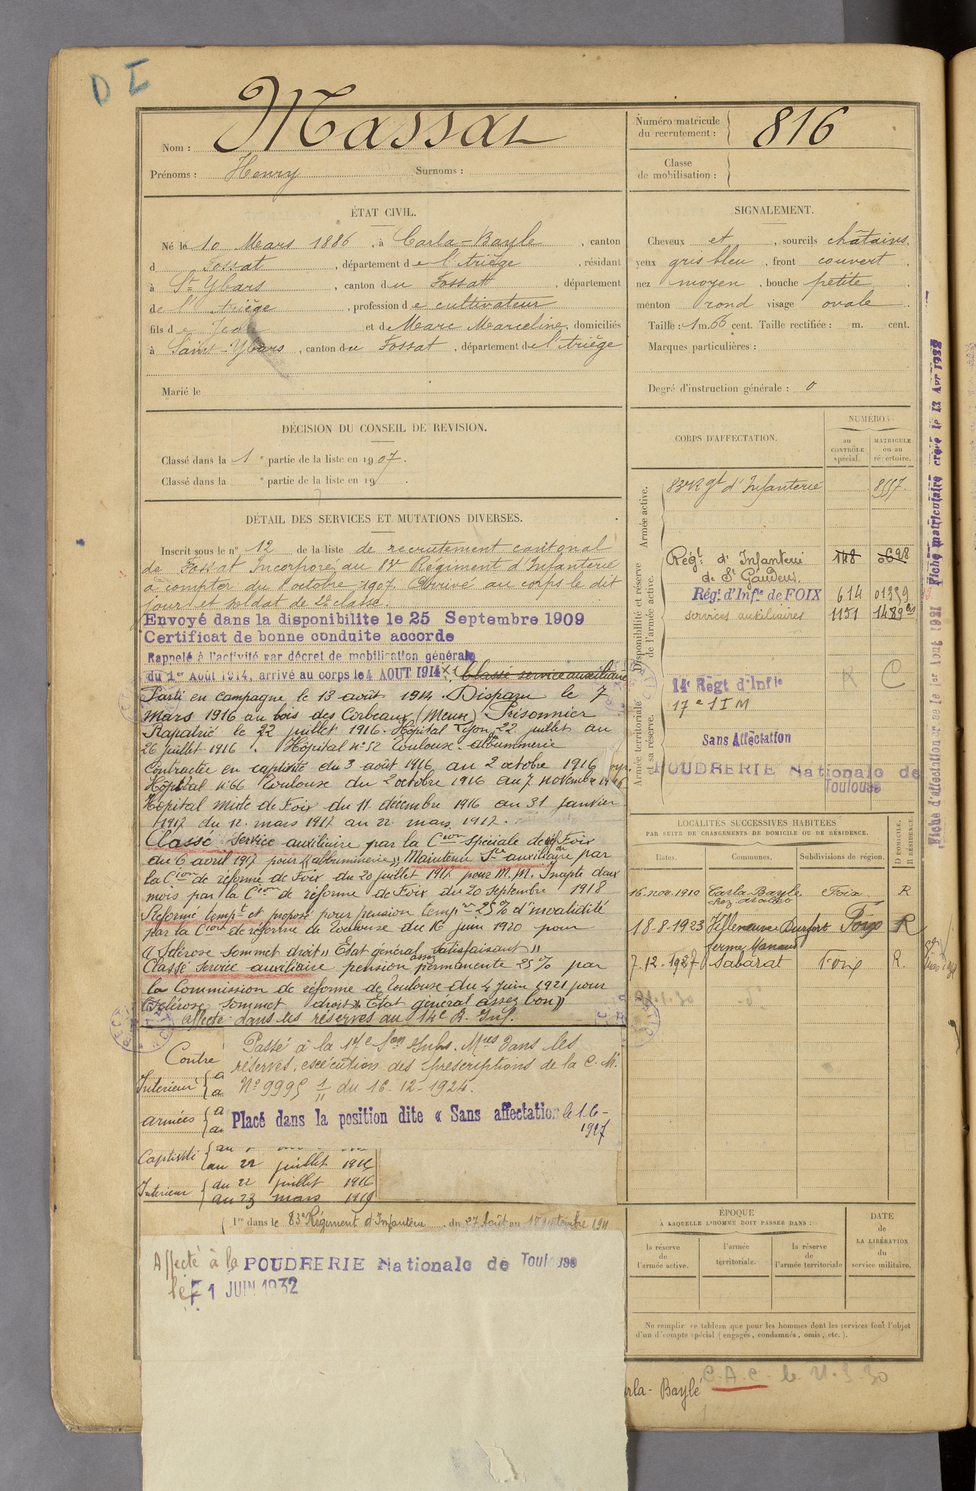 D I
Nom : Massat
Prénoms : Henry Surnoms :
Numéro matricule
du recrutement : 816
Classe
de mobilisation :
ÉTAT CIVIL.
Né le 10 Mars 1886, à Carla-Bayle, canton
d Fossat, département de l'Ariège, résidant
à St Ybars, canton du Fossat, département
de l'Ariège, profession de cultivateur
fils de Jean et de Marc Marceline, domiciliés
à Saint-Ybars, canton du Fossat, département de l'Ariège
Marié le
SIGNALEMENT.
Cheveux et, sourcils châtains.
yeux gris bleu, front couvert
nez moyen, bouche petite
menton rond visage ovale
Taille : 1 m. 66 cent. Taille rectifiée : m. cent.
Marques particulières :
Degré d'instruction générale : 0
DÉCISION DU CONSEIL DE REVISION.
Classé dans la 1e partie de la liste en 1907.
Classé dans la e partie de la liste en 19 .
DÉTAIL DES SERVICES ET MUTATIONS DIVERSES.
Inscrit sous le n° 12 de la liste de recrutement cantonal
de Fossat Incorporé au Régiment d'Infanterie
à compter du 8 octobre 1907. Arrivé au corps le dit
jour et soldat de 2e classe.
Envoyé dans la disponibilité le 25 Septembre 1909
Certificat de bonne conduite accordé
Rappelé à l'activité par décret de mobilisation générale
du 1er Août 1914, arrivé au corps le 4 AOUT 1914 Classé service auxiliaire
Parti en campagne le 13 août 1914. Disparu le 7
mars 1916 au bois des Corbeaux (Meuse) Prisonnier
Rapatrié le 22 juillet 1916. Hôpital Lyon 22 juillet au
26 juillet 1916. Hôpital n° 52 Toulouse albuminerie
Contractée en captivité du 3 août 1916 au 2 octobre 1916
Hôpital n° 66 Toulouse du 2 octobre 1916 au 7 novembre 1916
Hôpital mixte de Foix du 11 décembre 1916 au 31 janvier
1917 du 12 mars 1917 au 22 mars 1917.
Classé Service auxiliaire par la Cion Spéciale de Foix
du 6 avril 1917 pour "albuminerie" Maintenu Sce auxiliaire par
la Cion de réforme de Foix du 20 juillet 1917 pour M.M. Inapte deux
mois par la Cion de réforme de Foix du 20 septembre 1918
Réformé tempre et proposé pour pension tempre 25% d'invalidité
par la Cion de réforme de Toulouse du 16 juin 1920 pour
"Sclérose sommet droit" Etat général satisfaisant"
Classé Service auxiliaire pension permanente 25% par
la Commission de réforme de Toulouse du 4 juin 1921 pour
"Sclérose sommet droit" Etat général assez bon"
affecté dans les réserves au 14e R. Inf.
Passé à la 17e Son Infrs. Mres dans les
réserves, exécution des prescriptions de la C. M.
N° 9995 1/11 du 16-12-1924.
Placé dans la position dite « Sans affectation le 1-6-
1927
Contre
Intérieur
armées
Captivité au 22 juillet 1916
Intérieur du 22 juillet 1916
au 23 mars 1919
1er dans le 83e Régiment d'Infanterie du 27 Août au
Affecté à la POUDRERIE Nationale de Toulouse
le 1 JUIN 1932
CORPS D'AFFECTATION.
NUMÉROS
AU
CONTRÔLE
spécial.
MATRICULE
ou au
répertoire.
Armée active.
83e Rgt d'Infanterie 8557.
Disponibilité et réserve
de l'armée active.
Régt d'Infanterie
de St Gaudens.
Régt d'Infie de FOIX 614 01339
services auxiliaires 1151 1489
R C
Armée territoriale
et sa réserve.
14e Régt d'Infie
17e S I M
Sans Affectation
POUDRERIE Nationale de
Toulouse
LOCALITÉS SUCCESSIVES HABITÉES
PAR SUITE DE CHANGEMENTS DE DOMICILE OU DE RÉSIDENCE.
Dates. Communes. Subdivisions de région. D DOMICILE. R RÉSIDENCE.
16 nov. 1910 Carla-Bayle Foix R
18.8.1923 Villeneuve Durfort Foix R
7.12.1927 Sabarat Foix R
ÉPOQUE
À LAQUELLE L'HOMME DOIT PASSER DANS :
DATE
de
LA LIBÉRATION
du
service militaire.
la réserve
de
l'armée active.
l'armée
territoriale.
la réserve
de
l'armée territoriale
Ne remplir ce tableau que pour les hommes dont les services font l'objet
d'un décompte spécial (engagés, condamnés, omis, etc.).
rla-Baylé
C.A.C. le 21-3-30
Fiche matriculaire créée le 13 Avr 1932